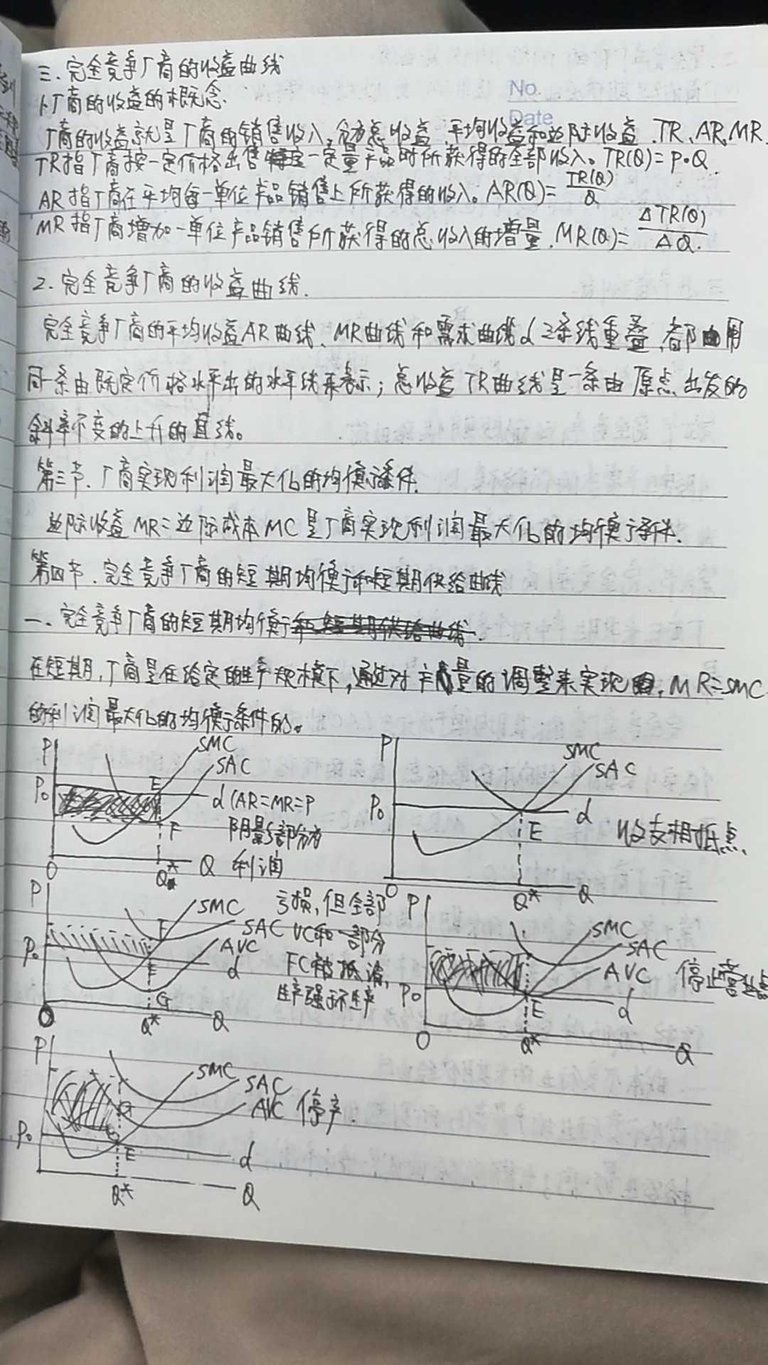 三.完全竞争厂商的收益曲线
1.厂商的收益的概念.
No.
Date
厂商的收益就是厂商的销售收入,分为总收益,平均收益和边际收益.TR、AR、MR.
TR指厂商按一定价格出售一定量产品时所获得的全部收入。TR(Q)=P·Q.
AR指厂商在平均每一单位产品销售上所获得的收入。AR(Q)=TR(Q)/Q
MR指厂商增加一单位产品销售所获得的总收入的增量.MR(Q)=ΔTR(Q)/ΔQ.
2.完全竞争厂商的收益曲线.
完全竞争厂商的平均收益AR曲线、MR曲线和需求曲线d三条线重叠,都由用
同一条由既定价格水平出的水平线来表示;总收益TR曲线是一条由原点出发的
斜率不变的上升的直线。
第三节.厂商实现利润最大化的均衡条件.
边际收益MR=边际成本MC是厂商实现利润最大化的均衡条件.
第四节.完全竞争厂商的短期均衡和短期供给曲线
一.完全竞争厂商的短期均衡和短期供给曲线.
在短期,厂商是在给定的生产规模下,通过对产量的调整来实现 MR=SMC
的利润最大化的均衡条件的。
P SMC
SAC
P₀ E d(AR=MR=P
F 阴影部分为
利润
O Q* Q
P SMC
SAC
P₀ d
E 收支相抵点
O Q* Q
P SMC 亏损,但全部
F SAC VC和一部分
P₀ E AVC FC被抵消,
d 生产强于不生产
G
O Q* Q
P SMC
SAC
AVC 停止营业点
P₀ E d
O Q* Q
P SMC
SAC
AVC 停产.
G
P₀ E d
Q* Q